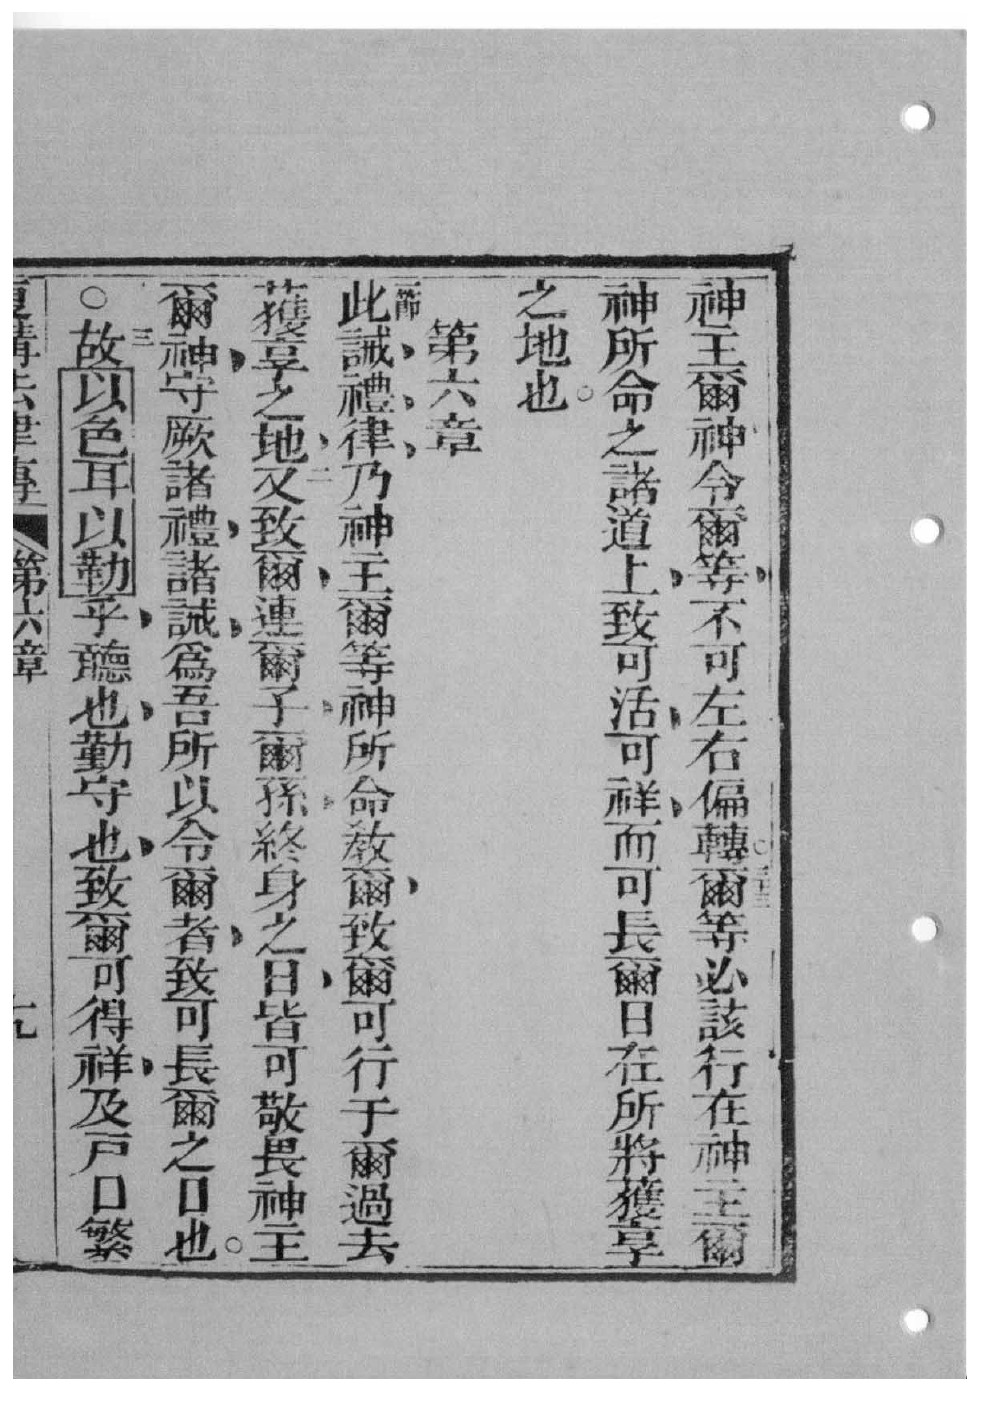 神主爾神令爾等、不可左右偏轉。三十三爾等必該行在神主爾
神所命之諸道上、致可活、可祥、而可長爾日在所將獲享
之地也。
第六章
一節此誡、禮、律、乃神主爾等神所命教爾、致爾可行于爾過去
獲享之地、二又致爾、連爾子、爾孫、終身之日、皆可敬畏神主
爾神、守厥諸禮、諸誡、爲吾所以令爾者、致可長爾之日也。
○三故以色耳以勒乎、聽也、勤守也、致爾可得祥、及戸口繁
復講法律傳 第六章 九